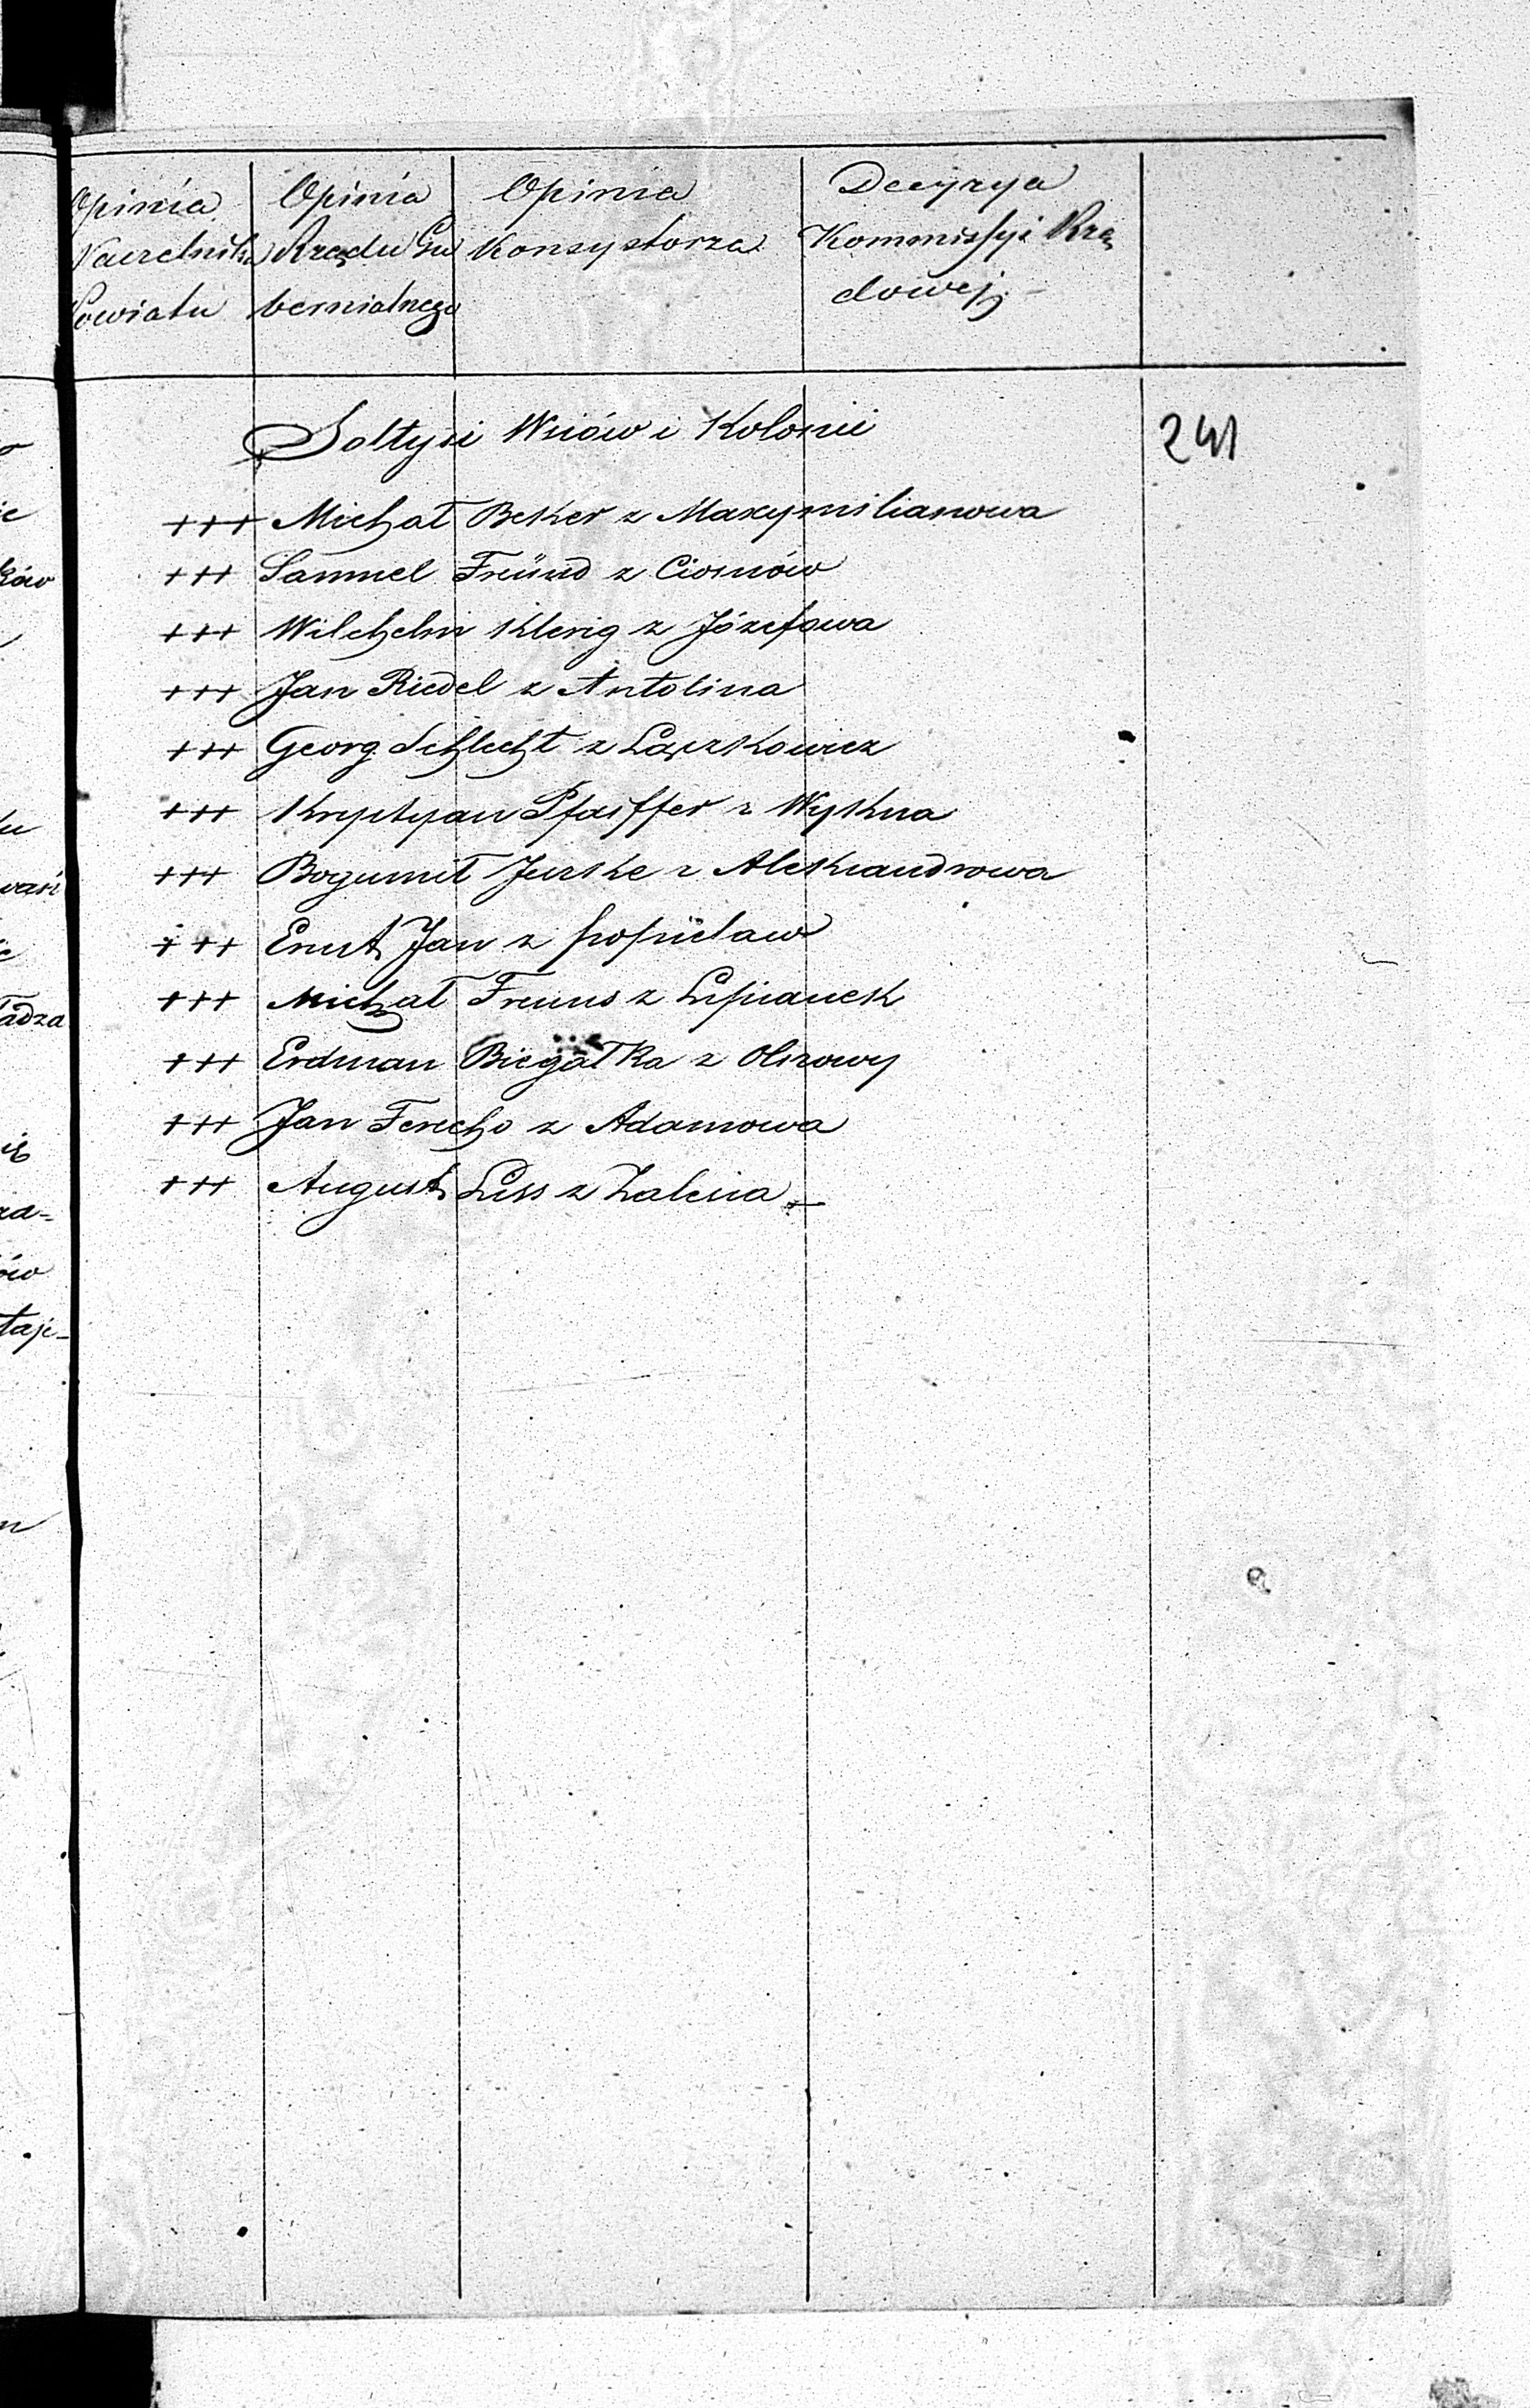 Opinia
Naczelnika
Powiatu
Opinia
Rządu Gu
bernialnego
Opinia
Konsystorza
Decyzya
Kommissyi Rzą
dowej
Sołtysi Wsiów i Kolonii
241
+++ Michał Beker z Maxymilianowa
+++ Samuel Freünd z Ciosnów
+++ Wilchelm Klerig z Józefowa
+++ Jan Riedel z Antolina
+++ Georg Schlecht z Łączkowicz
+++ Krystyan Pfaiffer z Wykna
+++ Bogumił Jeske z Aleksandrowa
+++ Ernst Jan z Popielaw
+++ Michał z Lipianek
+++ Erdman Biegałka z Olszowy
+++ Jan Ferecho z Adamowa
+++ August Liss z Zalesia